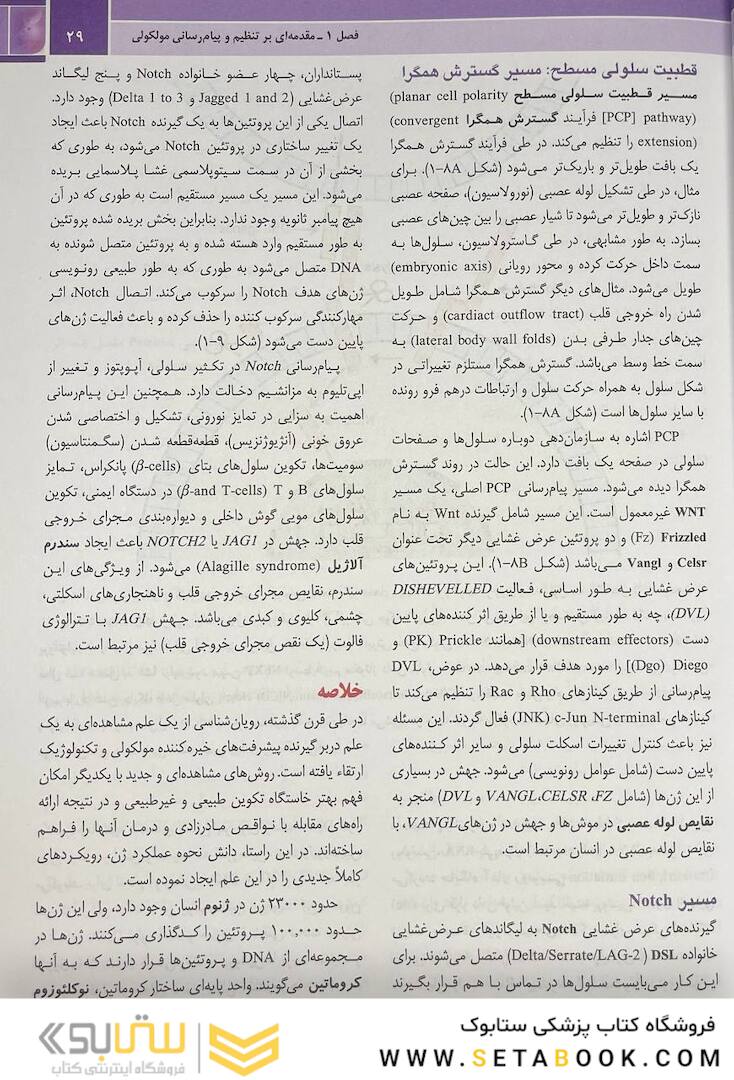 ۲۹
فصل ۱ ـ مقدمه‌ای بر تنظیم و پیام‌رسانی مولکولی
قطبیت سلولی مسطح: مسیر گسترش همگرا
مسیر قطبیت سلولی مسطح (planar cell polarity
pathway) [PCP] فرآیند گسترش همگرا (convergent
extension) را تنظیم می‌کند. در طی فرآیند گسترش همگرا
یک بافت طویل‌تر و باریک‌تر می‌شود (شکل ۱-۸A). برای
مثال، در طی تشکیل لوله عصبی (نورولاسیون)، صفحه عصبی
نازک‌تر و طویل‌تر می‌شود تا شیار عصبی را بین چین‌های عصبی
بسازد. به طور مشابهی، در طی گاسترولاسیون، سلول‌ها به
سمت داخل حرکت کرده و محور رویانی (embryonic axis)
طویل می‌شود. مثال‌های دیگر گسترش همگرا شامل طویل
شدن راه خروجی قلب (cardiact outflow tract) و حرکت
چین‌های جدار طرفی بدن (lateral body wall folds) به
سمت خط وسط می‌باشد. گسترش همگرا مستلزم تغییراتی در
شکل سلول به همراه حرکت سلول و ارتباطات درهم فرو رونده
با سایر سلول‌ها است (شکل ۱-۸A).
PCP اشاره به سازمان‌دهی دوباره سلول‌ها و صفحات
سلولی در صفحه یک بافت دارد. این حالت در روند گسترش
همگرا دیده می‌شود. مسیر پیام‌رسانی PCP اصلی، یک مسیر
WNT غیرمعمول است. این مسیر شامل گیرنده Wnt به نام
Frizzled (Fz) و دو پروتئین عرض غشایی دیگر تحت عنوان
Celsr و Vangl می‌باشد (شکل ۱-۸B). این پروتئین‌های
عرض غشایی به طور اساسی، فعالیت DISHEVELLED
(DVL)، چه به طور مستقیم و یا از طریق اثر کننده‌های پایین
دست (downstream effectors) [همانند Prickle (PK) و
Diego (Dgo)] را مورد هدف قرار می‌دهد. در عوض، DVL
پیام‌رسانی از طریق کینازهای Rho و Rac را تنظیم می‌کند تا
کینازهای c-Jun N-terminal (JNK) فعال گردند. این مسئله
نیز باعث کنترل تغییرات اسکلت سلولی و سایر اثر کننده‌های
پایین دست (شامل عوامل رونویسی) می‌شود. جهش در بسیاری
از این ژن‌ها (شامل FZ، VANGL،CELSR و DVL) منجر به
نقایص لوله عصبی در موش‌ها و جهش در ژن‌های VANGL، با
نقایص لوله عصبی در انسان مرتبط است.
مسیر Notch
گیرنده‌های عرض غشایی Notch به لیگاندهای عرض‌غشایی
خانواده DSL (Delta/Serrate/LAG-2) متصل می‌شوند. برای
این کار می‌بایست سلول‌ها در تماس با هم قرار بگیرند
پستانداران، چهار عضو خانواده Notch و پنج لیگاند
عرض‌غشایی (Jagged 1 and 2 و Delta 1 to 3) وجود دارد.
اتصال یکی از این پروتئین‌ها به یک گیرنده Notch باعث ایجاد
یک تغییر ساختاری در پروتئین Notch می‌شود، به طوری که
بخشی از آن در سمت سیتوپلاسمی غشا پلاسمایی بریده
می‌شود. این مسیر یک مسیر مستقیم است به طوری که در آن
هیچ پیامبر ثانویه وجود ندارد. بنابراین بخش بریده شده پروتئین
به طور مستقیم وارد هسته شده و به پروتئین متصل شونده به
DNA متصل می‌شود به طوری که به طور طبیعی رونویسی
ژن‌های هدف Notch را سرکوب می‌کند. اتصال Notch، اثر
مهارکنندگی سرکوب کننده را حذف کرده و باعث فعالیت ژن‌های
پایین دست می‌شود (شکل ۹-۱).
پیام‌رسانی Notch در تکثیر سلولی، آپوپتوز و تغییر از
اپی‌تلیوم به مزانشیم دخالت دارد. همچنین این پیام‌رسانی
اهمیت به سزایی در تمایز نورونی، تشکیل و اختصاصی شدن
عروق خونی (آنژیوژنزیس)، قطعه‌قطعه شدن (سگمنتاسیون)
سومیت‌ها، تکوین سلول‌های بتای (β-cells) پانکراس، تمایز
سلول‌های B و T (β-and T-cells) در دستگاه ایمنی، تکوین
سلول‌های مویی گوش داخلی و دیواره‌بندی مجرای خروجی
قلب دارد. جهش در JAG1 یا NOTCH2 باعث ایجاد سندرم
آلاژیل (Alagille syndrome) می‌شود. از ویژگی‌های این
سندرم، نقایص مجرای خروجی قلب و ناهنجاری‌های اسکلتی،
چشمی، کلیوی و کبدی می‌باشد. جهش JAG1 با تترالوژی
فالوت (یک نقص مجرای خروجی قلب) نیز مرتبط است.
خلاصه
در طی قرن گذشته، رویان‌شناسی از یک علم مشاهده‌ای به یک
علم دربرگیرنده پیشرفت‌های خیره‌کننده مولکولی و تکنولوژیک
ارتقاء یافته است. روش‌های مشاهده‌ای و جدید با یکدیگر امکان
فهم بهتر خاستگاه تکوین طبیعی و غیرطبیعی و در نتیجه ارائه
راه‌های مقابله با نواقص مادرزادی و درمان آنها را فراهم
ساخته‌اند. در این راستا، دانش نحوه عملکرد ژن، رویکردهای
کاملاً جدیدی را در این علم ایجاد نموده است.
حدود ۲۳۰۰۰ ژن در ژنوم انسان وجود دارد، ولی این ژن‌ها
حدود ۱۰۰,۰۰۰ پروتئین را کدگذاری می‌کنند. ژن‌ها در
مجموعه‌ای از DNA و پروتئین‌ها قرار دارند که به آنها
کروماتین می‌گویند. واحد پایه‌ای ساختار کروماتین، نوکلئوزوم
فروشگاه کتاب پزشکی ستابوک
WWW.SETABOOK.COM
ستابوک
فروشگاه اینترنتی کتاب